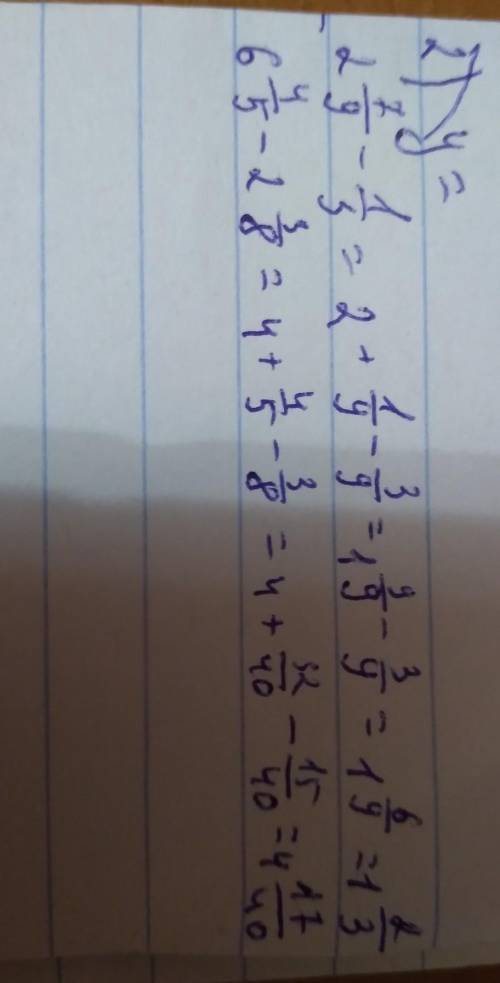 2) y =
2 7/9 - 1/3 = 2 + 1/9 - 3/9 = 1 9/9 - 3/9 = 1 6/9 = 1 2/3
6 4/5 - 2 3/8 = 4 + 4/5 - 3/8 = 4 + 32/40 - 15/40 = 4 17/40